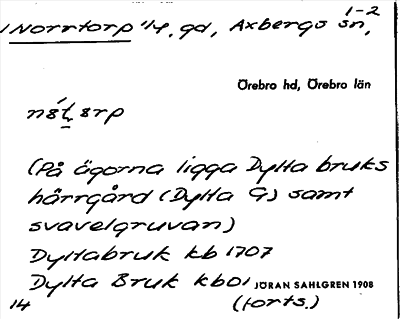 1-2
Norrtorp 1/4, gd, Axbergs sn,
Örebro hd, Örebro län
(På ägorna ligga Dylta bruks
härrgård (Dylta G) samt
svavelgruvan)
Dyltabruk kb 1707
Dylta Bruk kb01 JÖRAN SAHLGREN 1908
14 (forts.)